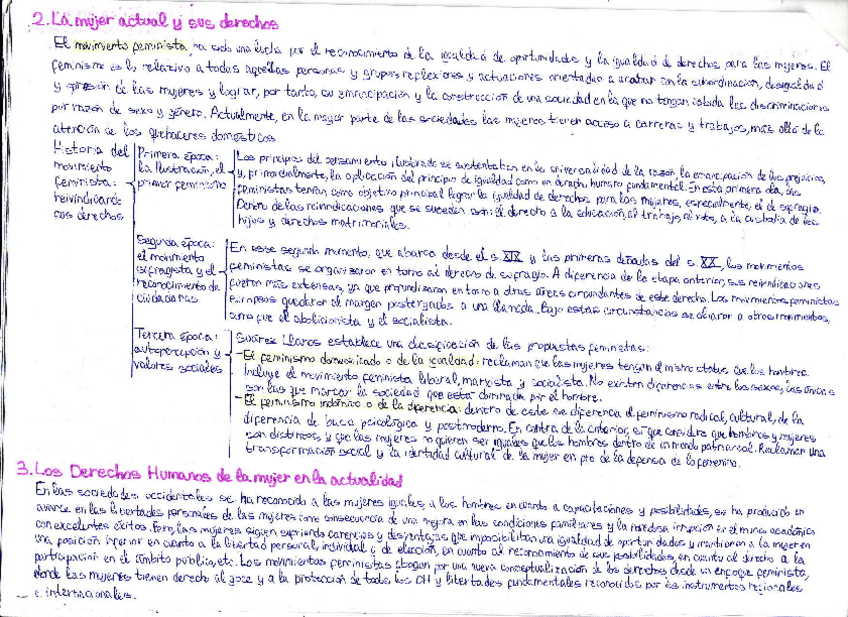 2. La mujer actual y sus derechos
El movimiento feminista ha sido una lucha por el reconocimiento de la igualdad de oportunidades y la igualdad de derechos para las mujeres. El
feminismo es lo relativo a todas aquellas personas y grupos reflexiones y actuaciones orientadas a acabar con la subordinación, desigualdad
y opresión de las mujeres y lograr, por tanto, su emancipación y la construcción de una sociedad en la que no tengan cabida las discriminaciones
por razón de sexo y género. Actualmente, en la mayor parte de las sociedades las mujeres tienen acceso a carreras y trabajos, más allá de la
atención de los quehaceres domésticos.
Historia del movimiento feminista: reivindicando sus derechos
Primera época: la Ilustración, el primer feminismo
Los principios del pensamiento ilustrado se sustentaban en la universalidad de la razón, la emancipación de los prejuicios,
y, primordialmente, la aplicación del principio de igualdad como un derecho humano fundamental. En esta primera ola, las
feministas tenían como objetivo principal lograr la igualdad de derechos para las mujeres, especialmente, el de sufragio.
Dentro de las reivindicaciones que se suceden son: el derecho a la educación, al trabajo, al voto, a la custodia de los
hijos y derechos matrimoniales.
Segunda época: el movimiento sufragista y el reconocimiento de ciudadanas
En este segundo momento, que abarca desde el s. XIX y las primeras décadas del s. XX, los movimientos
feministas se organizaron en torno al derecho de sufragio. A diferencia de la etapa anterior, sus reivindicaciones
fueron más extensas, ya que profundizaron en torno a otras áreas circundantes de este derecho. Los movimientos feministas
europeos quedaron al margen postergados a una llamada. Bajo estas circunstancias se aliaron a otros movimientos,
como fue el abolicionista y el socialista.
Tercera época: autopercepción y valores sociales
Suárez Llanos establece una clasificación de las propuestas feministas:
- El feminismo domesticado o de la igualdad: reclaman que las mujeres tengan el mismo status que los hombres.
Incluye el movimiento feminista liberal, marxista y socialista. No existen diferencias entre los sexos, las únicas
son las que marcar la sociedad que esta dominada por el hombre.
- El feminismo indómito o de la diferencia: dentro de este se diferencia el feminismo radical, cultural, de la
diferencia de base psicológica y postmoderno. En contra de la anterior, si que considera que hombres y mujeres
son distintos, y que las mujeres no quieren ser iguales que los hombres dentro de un mundo patriarcal. Reclamar una
transformación social y la identidad cultural de la mujer en pro de la defensa de lo femenino.
3. Los Derechos Humanos de la mujer en la actualidad
En las sociedades occidentales se ha reconocido a las mujeres iguales, a los hombres en cuanto a capacitaciones y posibilidades, se ha producido un
avance en las libertades personales de las mujeres como consecuencia de una mejora en las condiciones familiares y la irrupción en el mundo académico
con excelentes éxitos. Pero, las mujeres siguen sufriendo carencias y desventajas que imposibilitan una igualdad de oportunidades y mantienen a la mujer en
una posición inferior en cuanto a la libertad personal, individual y de elección, en cuanto al reconocimiento de sus posibilidades, en cuanto al derecho a la
participación en el ámbito público, etc. Los movimientos feministas abogan por una nueva conceptualización de los derechos desde un enfoque feminista,
donde las mujeres tienen derecho al goce y a la protección de todos los DH y libertades fundamentales reconocidos por los instrumentos regionales
e internacionales.